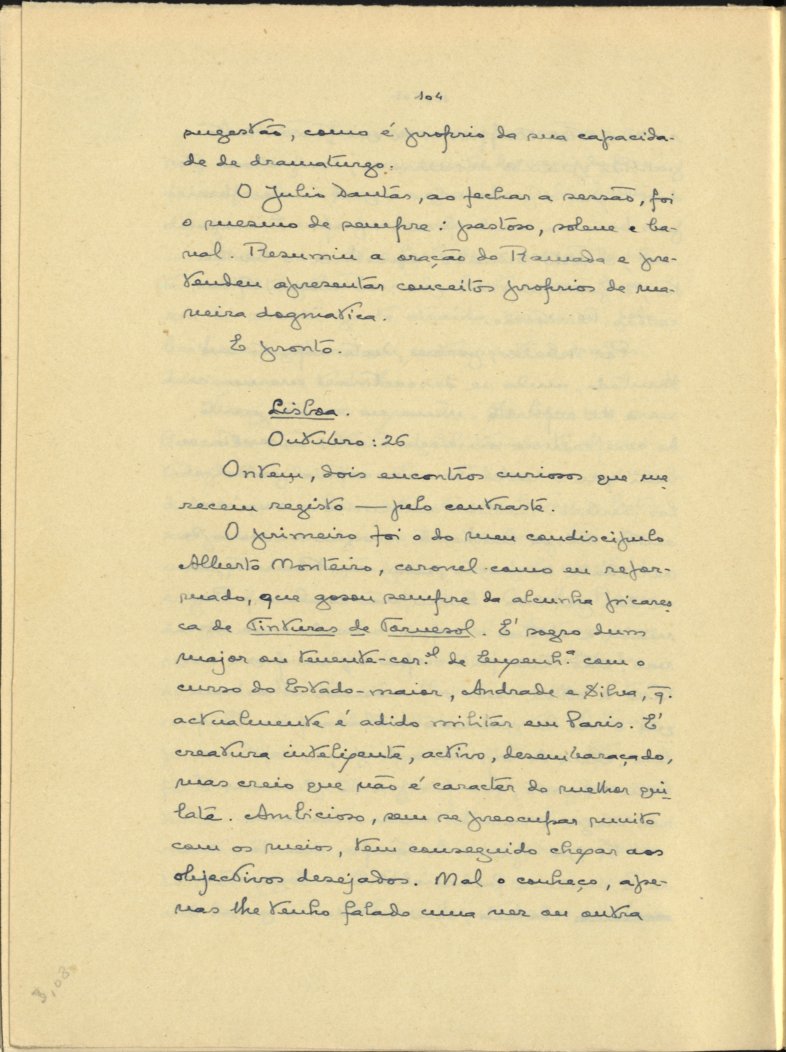 104
sugestão, como é proprio da sua capacida-
de de dramaturgo.
O Julio Dantas, ao fechar a sessão, foi
o mesmo de sempre: pastoso, solene e ba-
nal. Resumiu a oração do Ramada e pre-
tendeu apresentar conceitos proprios de ma-
neira dogmatica.
E pronto.
Lisboa.
Outubro: 26
Ontem, dois encontros curiosos que me
recem registo — pelo contraste.
O primeiro foi o do meu condiscipulo
Alberto Monteiro, coronel como eu refor-
mado, que gosou sempre da alcunha picares
ca de Tinturas de Tornesol. É sogro dum
major ou tenente-cor.el de Engenh.a com o
curso do Estado-maior, Andrade e Silva, q.
actualmente é adido militar em Paris. É
creatura inteligente, activo, desembaraçado,
mas creio que não é caracter do melhor qui
late. Ambicioso, sem se preocupar muito
com os meios, tem conseguido chegar aos
objectivos desejados. Mal o conheço, ape-
nas lhe tenho falado uma vez ou outra
3,08